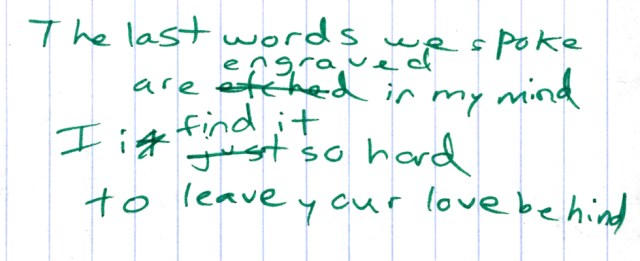 The last words we spoke
engraved
are etched in my mind
find it
I is just so hard
to leave your love behind